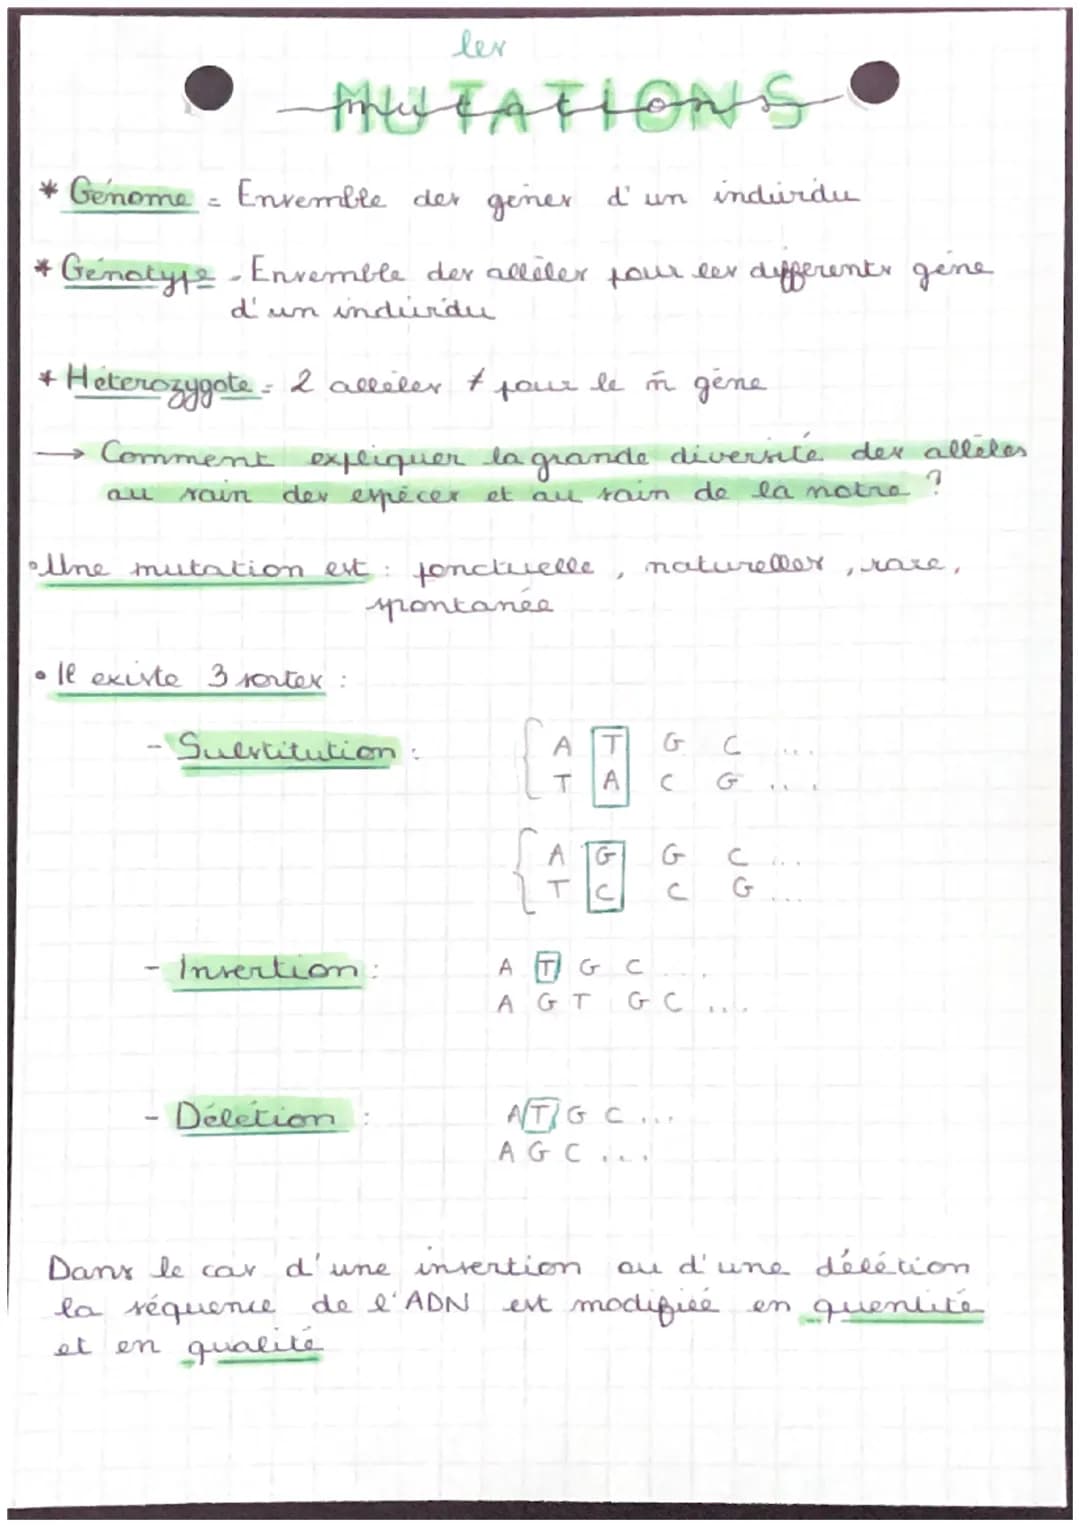 les
MUTATIONS
mutations
* Génome = Ensemble des gènes d'un individu
* Génotype = Ensemble des allèles pour les différents gène
d'un individu
* Hétérozygote = 2 allèles ≠ pour le m̂ gène
→ Comment expliquer la grande diversité des allèles
au sain des espèces et au sain de la notre ?
• Une mutation est : ponctuelle, naturelles, rare,
spontanée
• Il existe 3 sortes :
- Substitution : A T G C ....
T A C G ....
A G G C ...
T C C G ....
- Insertion : A T G C ....
A G T G C ....
- Délétion : A T G C ...
A G C ....
Dans le cas d'une insertion ou d'une délétion
la séquence de l'ADN est modifiée en quentité
et en qualité